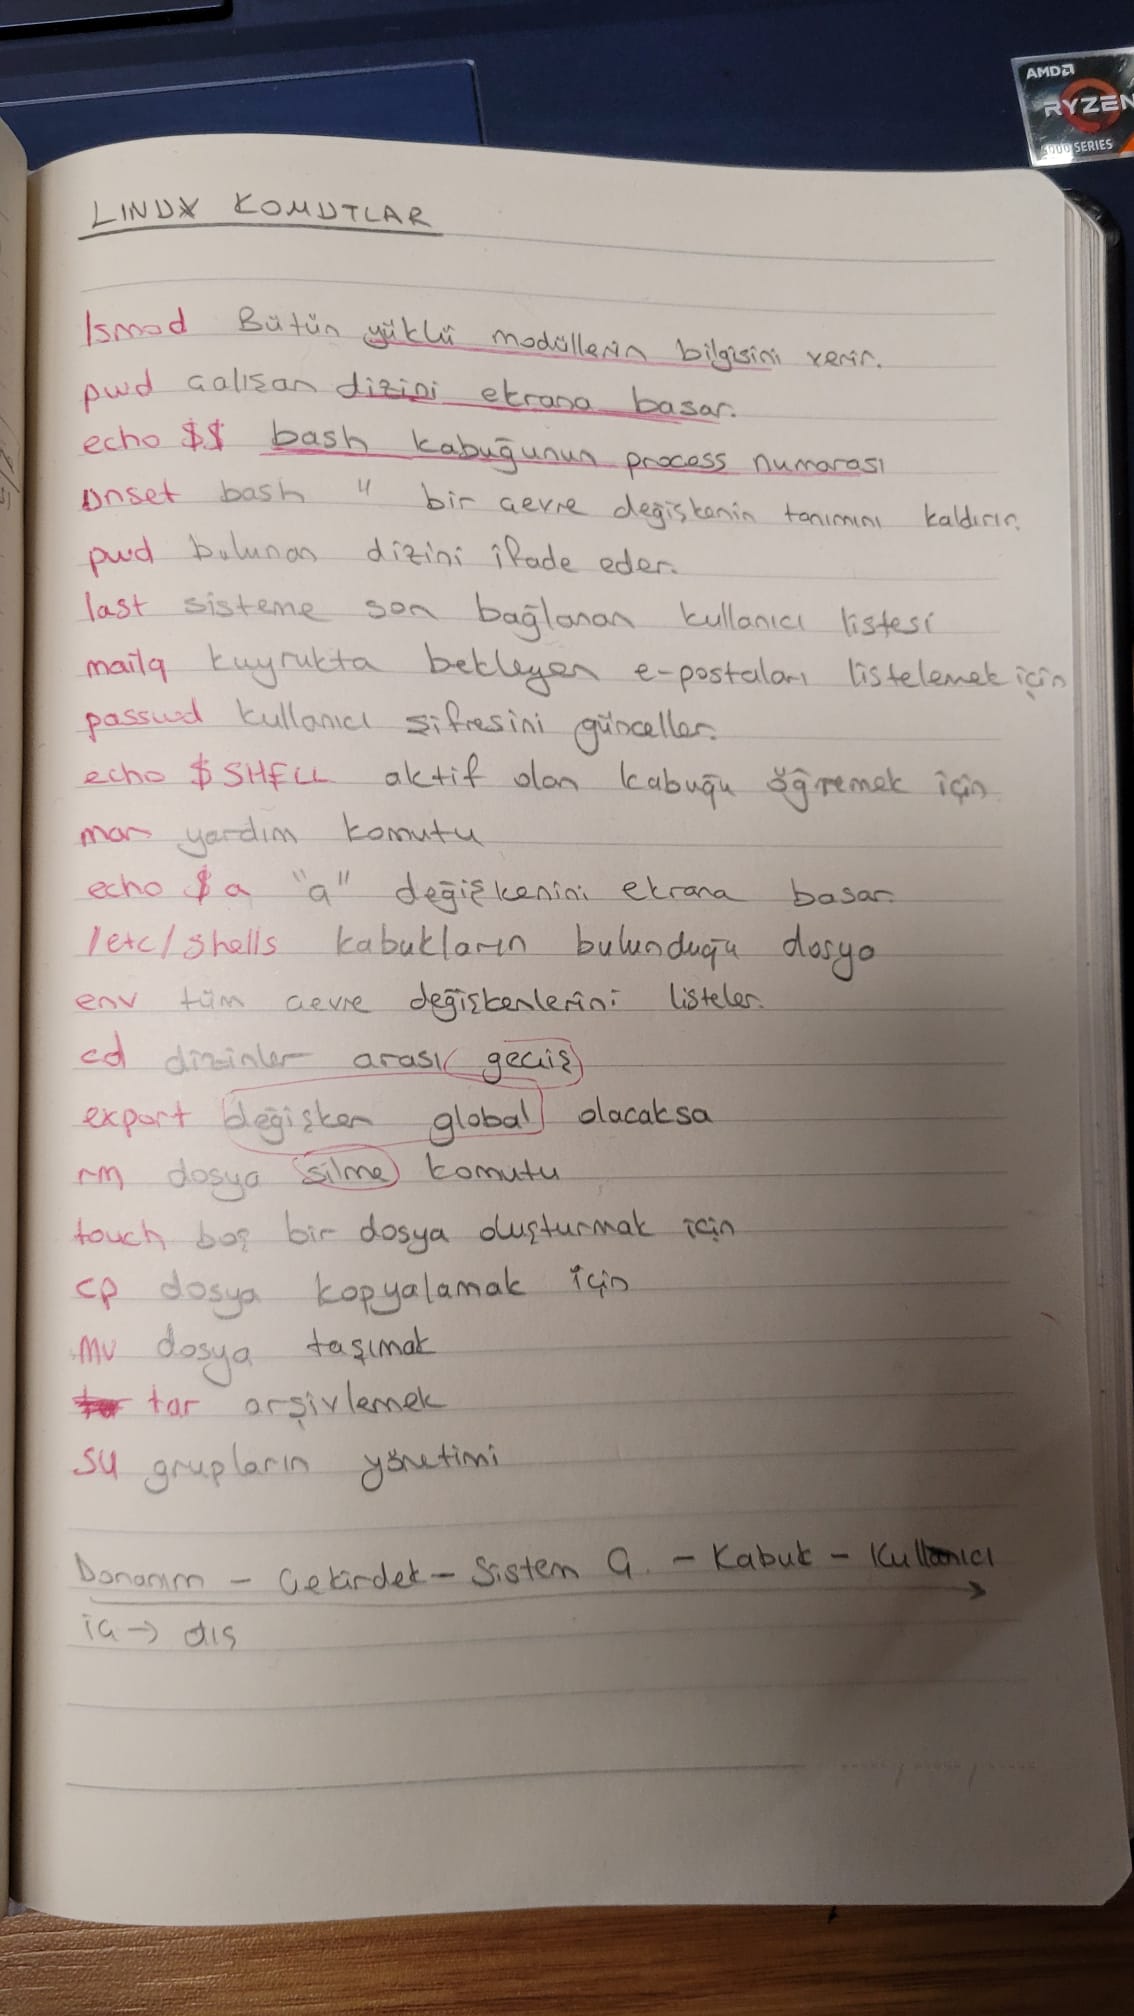 AMD
RYZEN
5000 SERIES
LINUX KOMUTLAR
lsmod Bütün yüklü modüllerin bilgisini verir.
pwd çalışan dizini ekrana basar.
echo $$ bash kabuğunun process numarası
unset bash " bir çevre değişkenin tanımını kaldırır.
pwd bulunan dizini ifade eder.
last sisteme son bağlanan kullanıcı listesi
mailq kuyrukta bekleyen e-postaları listelemek için
passwd kullanıcı şifresini günceller.
echo $SHELL aktif olan kabuğu öğremek için
man yardım komutu
echo $a "a" değişkenini ekrana basar.
/etc/shells kabukların bulunduğu dosya
env tüm çevre değişkenlerini listeler.
cd dizinler arası geçiş
export değişken global olacaksa
rm dosya silme komutu
touch boş bir dosya oluşturmak için
cp dosya kopyalamak için
mv dosya taşımak
tar arşivlemek
su grupların yönetimi
Donanım - Çekirdek - Sistem Ç. - Kabuk - Kullanıcı
iç → dış